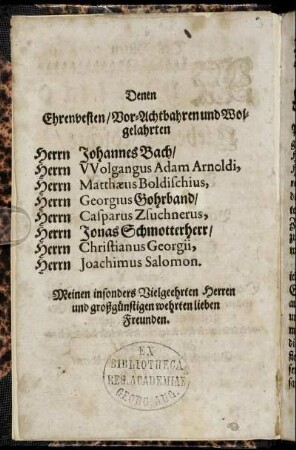 Denen
Ehrenvesten/ Vor-Achtbahren und Wol-
gelahrten
Herrn Johannes Bach/
Herrn VVolgangus Adam Arnoldi,
Herrn Matthæus Boldischius,
Herrn Georgius Gohrband/
Herrn Casparus Zsuchnerus,
Herrn Jonas Schmotterherr/
Herrn Christianus Georgii,
Herrn Joachimus Salomon.
Meinen insonders Vielgeehrten Herren
und großgünstigen wehrten lieben
Freunden.
EX
BIBLIOTHECA
REG. ACADEMIAE
GEORG. AUG.